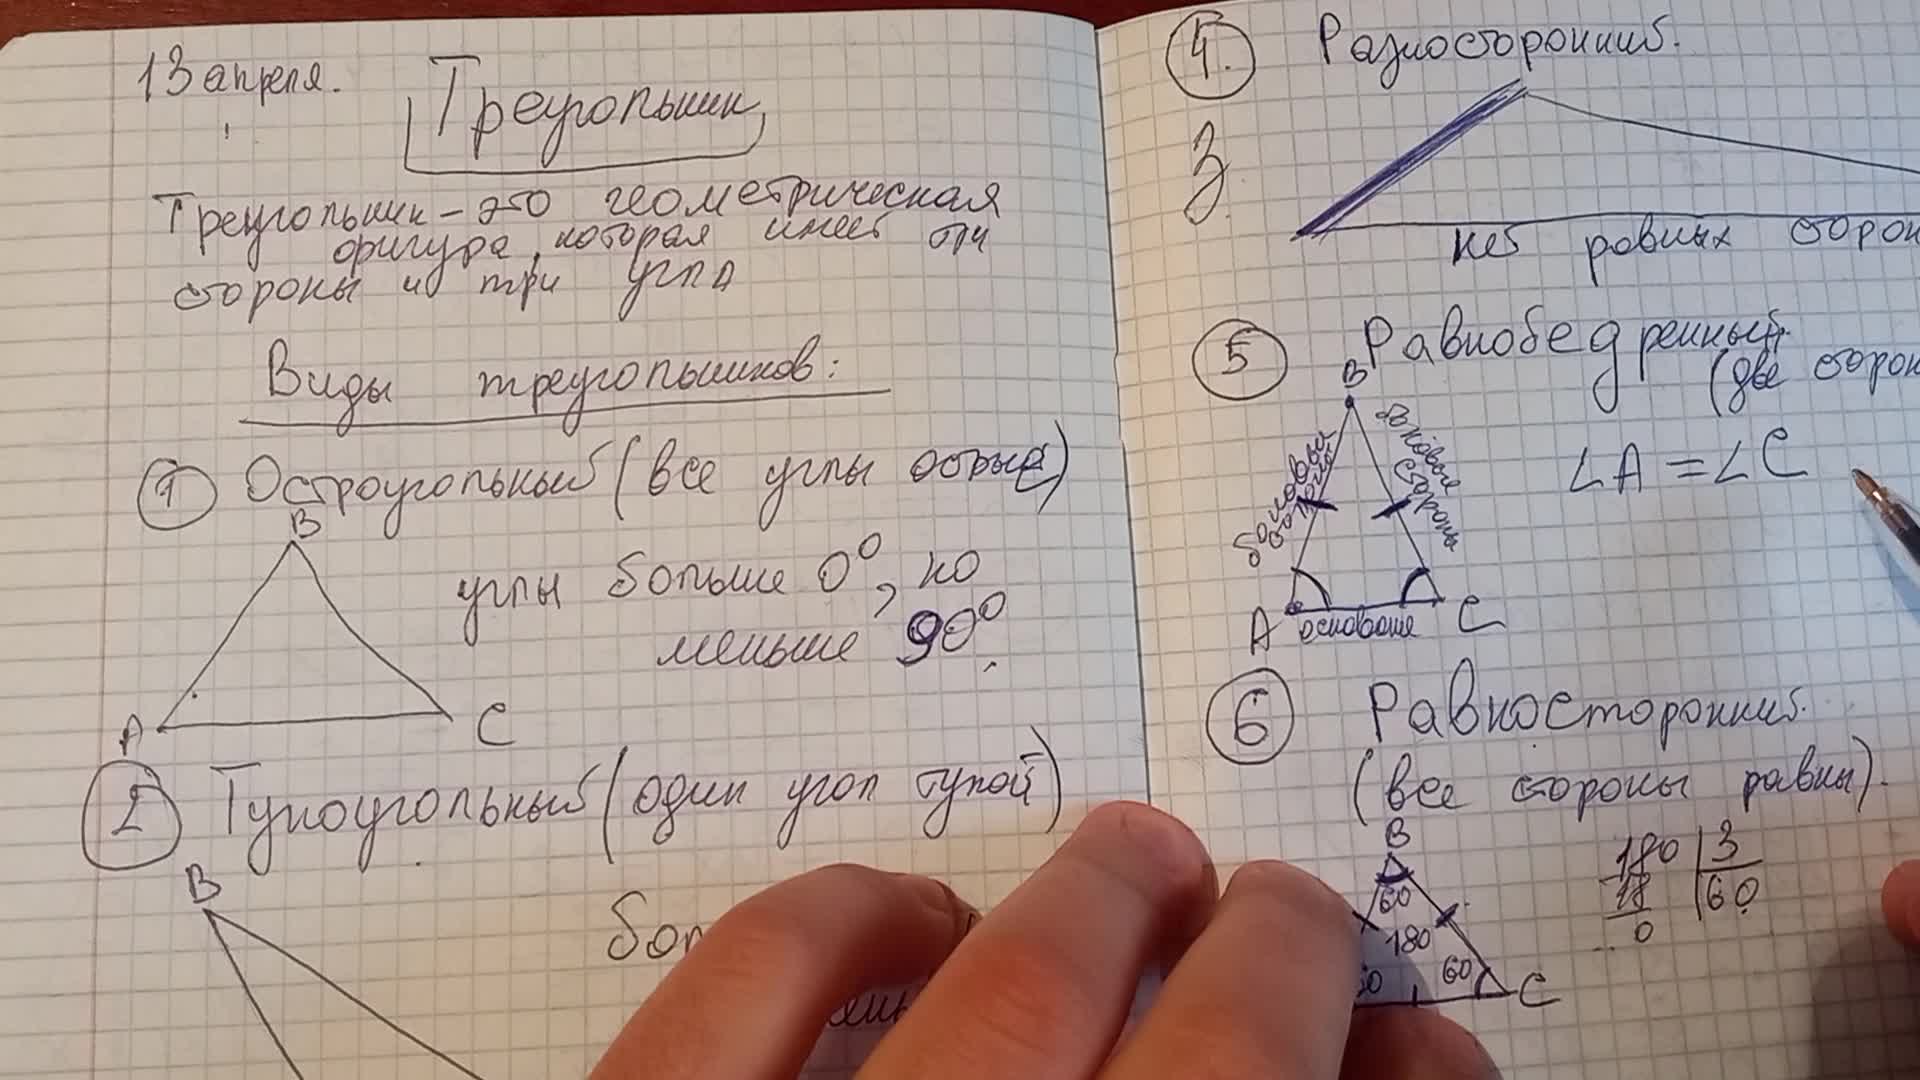 13 апреля.
Треугольник
Треугольник - это геометрическая
фигура, которая имеет три
стороны и три угла
Виды треугольников:
1 Остроугольный (все углы острые)
B
углы больше 0°, но
меньше 90°.
A C
2 Тупоугольный (один угол тупой)
B
4. Разносторонний.
3
нет равных сторон
5 Равнобедренный.
(две сторон
B
боковая сторона
боковая сторона
∠A = ∠C
A основание C
6 Равносторонний.
(все стороны равны).
B
60
180
60
C
180 3
18 60
0